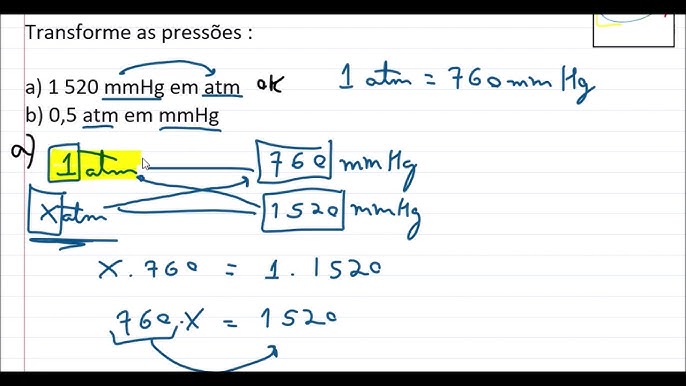 Transforme as pressões :
a) 1 520 mmHg em atm OK
1 atm = 760 mm Hg
b) 0,5 atm em mmHg
a) 1 atm 760 mm Hg
X atm 1520 mm Hg
X . 760 = 1 . 1520
760 . X = 1520